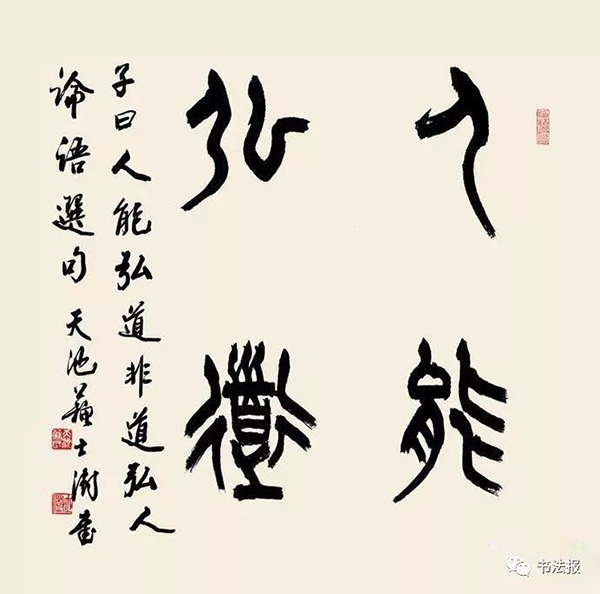 人能
弘道
子曰人能弘道非道弘人
論語選句 天池蘇士澍書
书法报